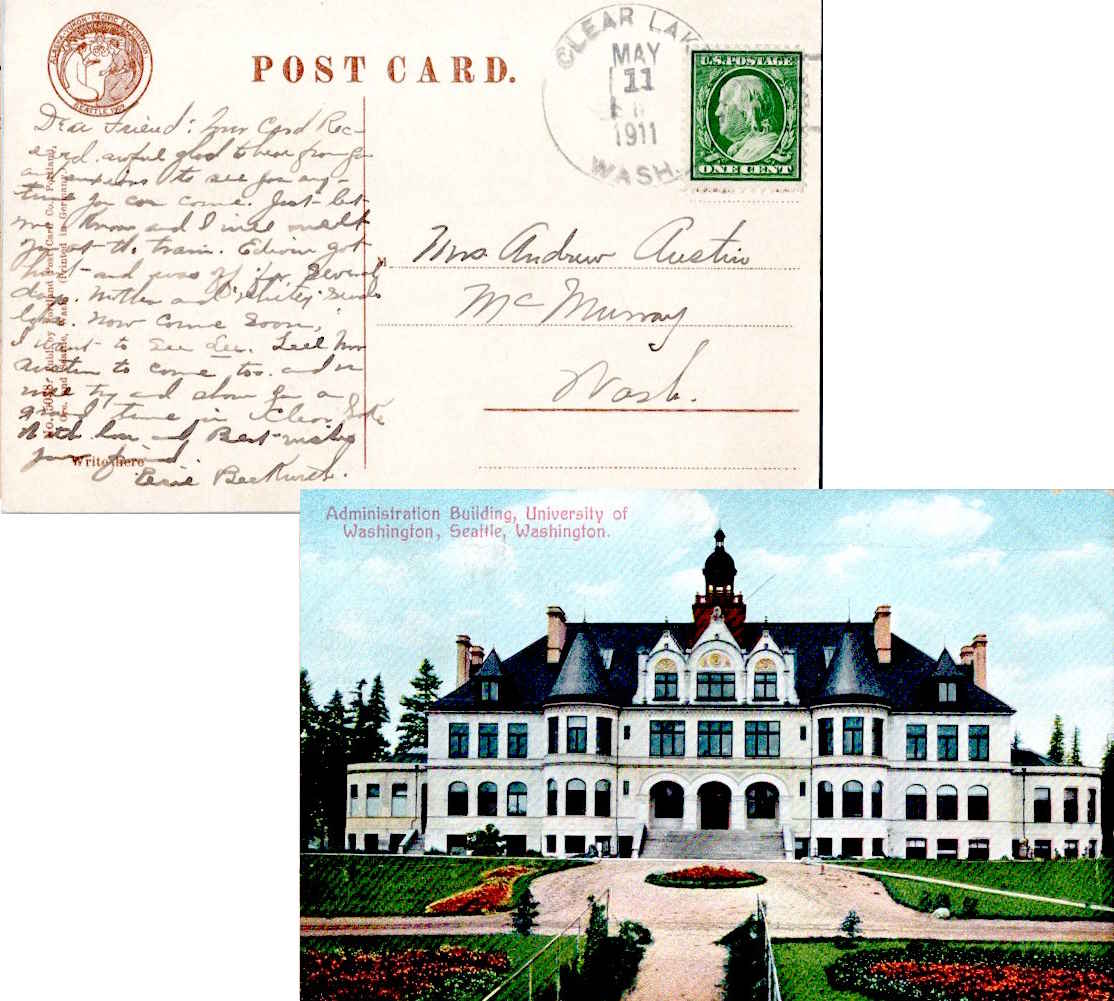 ALASKA-YUKON-PACIFIC EXPOSITION
SEATTLE 1909
POST CARD.
CLEAR LAKE
MAY
11
1911
WASH.
U.S. POSTAGE
ONE CENT
Dear Friend: Your Card Rec-
awful glad to hear from you
anxious to see you any-
time you can come. Just let
me know and I will meet
you at the train. Edwin got
hurt and was off for several
days. Mother and Whitey sends
love. Now come soon,
I want to see Lee. Tell Mr
Austin to come too. and we
will try and show you a
good time in Clear Lake
With love and Best wishes
your friend
Mrs. Andrew Austin
McMurray
Wash.
Write here
Publ. by Portland Post Card Co., Portland,
Ore. and Seattle, Wash. (Printed in Germany.)
Administration Building, University of
Washington, Seattle, Washington.